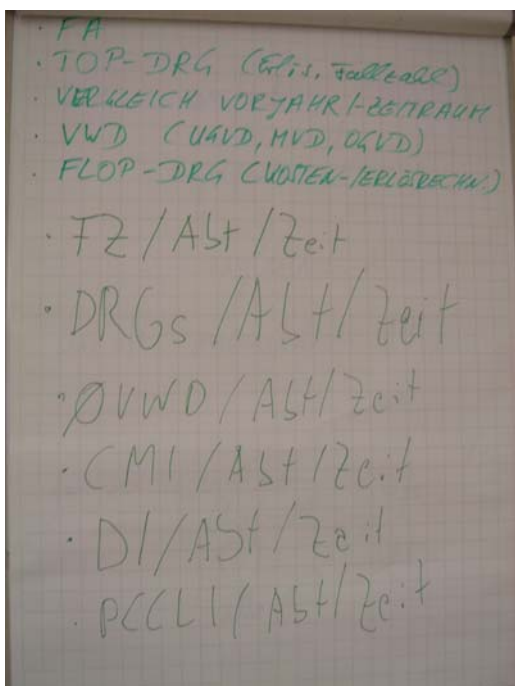 · FA
· TOP-DRG (Erlös, Fallzahl)
· VERGLEICH VORJAHR/-ZEITRAUM
· VWD (UGVD, MVD, OGVD)
· FLOP-DRG (KOSTEN-/ERLÖSRECHN.)
· FZ/Abt/Zeit
· DRGs/Abt/Zeit
· ØVWD/Abt/Zeit
· CMI/Abt/Zeit
· DI/Abt/Zeit
· PCCLI/Abt/Zeit